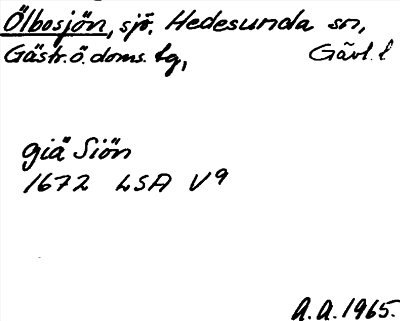 Ölbosjön, sjö. Hedesunda sn,
Gästr. ö. doms. tg, Gävl. l
giä Siön
1672 LSA V9
A.A. 1965.